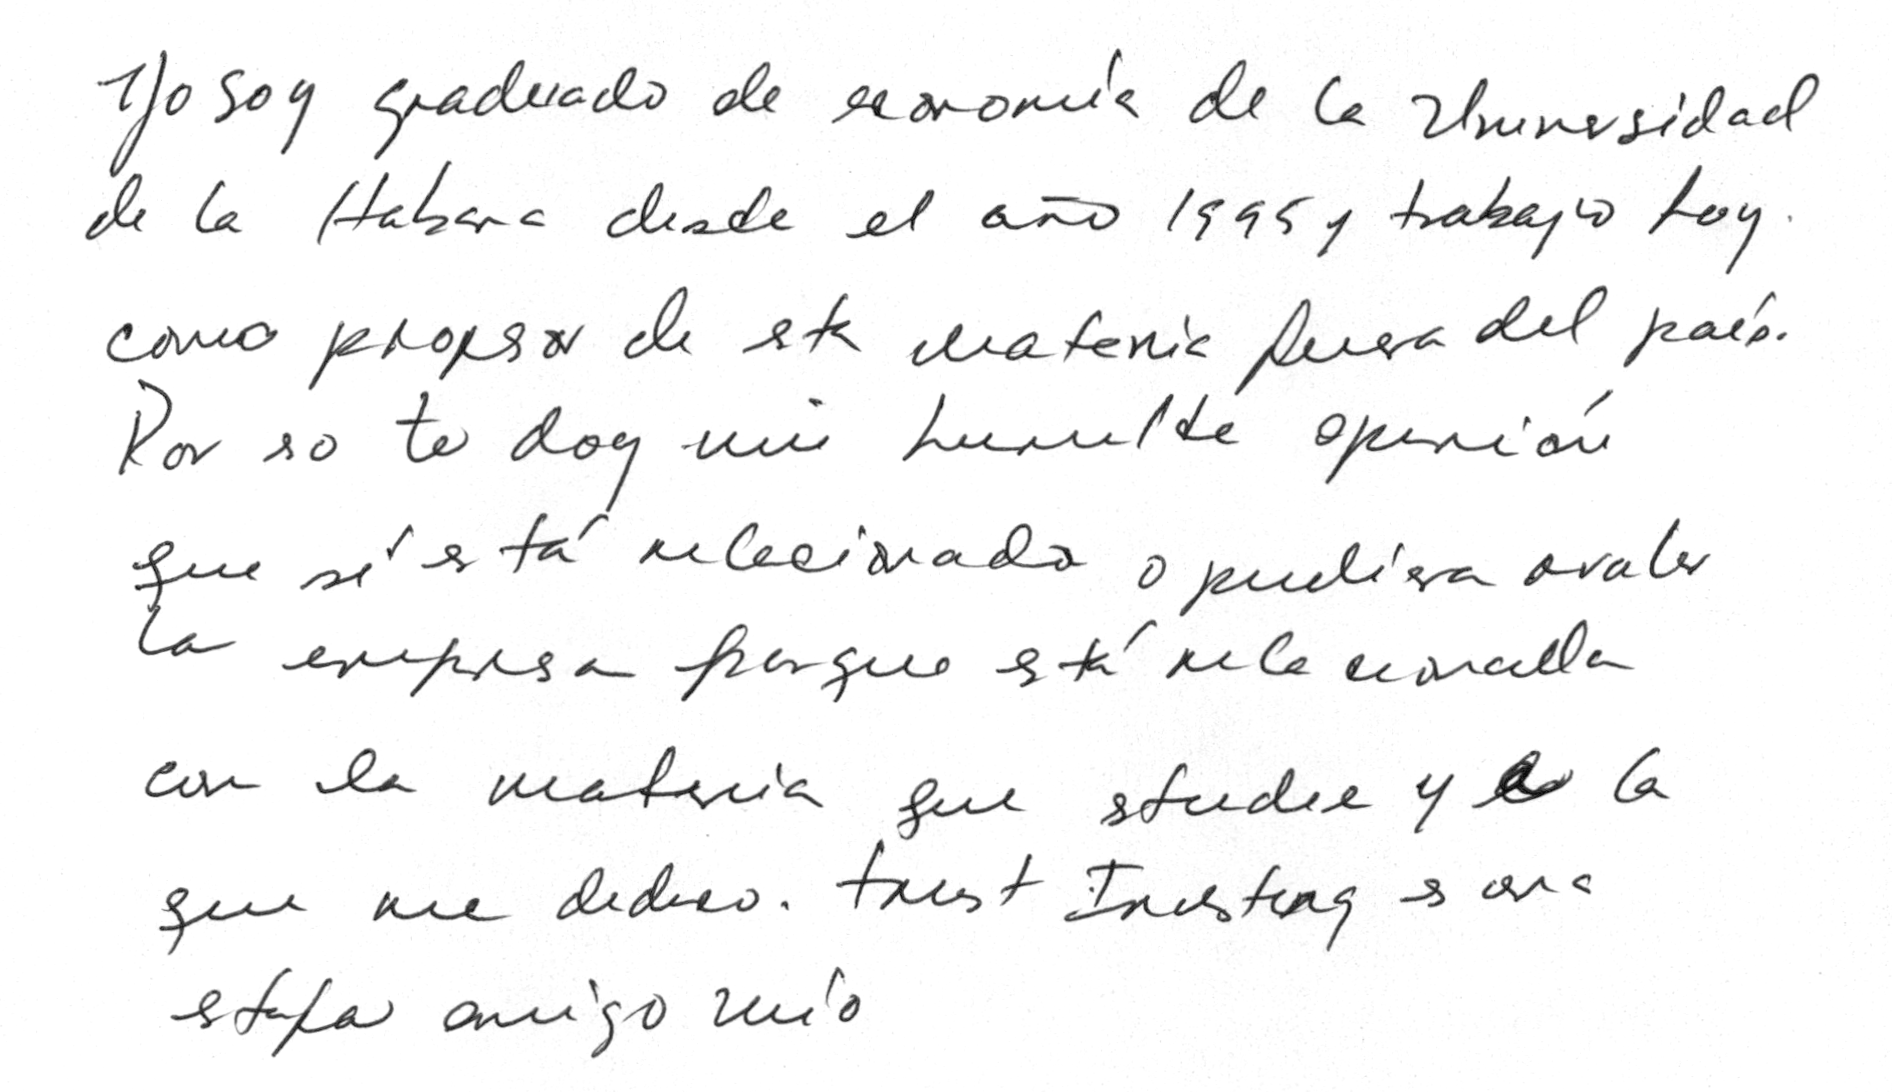 Yo soy graduado de economía de la Universidad
de la Habana desde el año 1995 y trabajo hoy.
como profesor de esta materia fuera del país.
Por eso te doy mi humilde opinión
que sí está relacionado o pudiera avalar
la empresa porque está relacionada
con la materia que estudie y la
que me dedico. trust Investing es una
estafa amigo mío